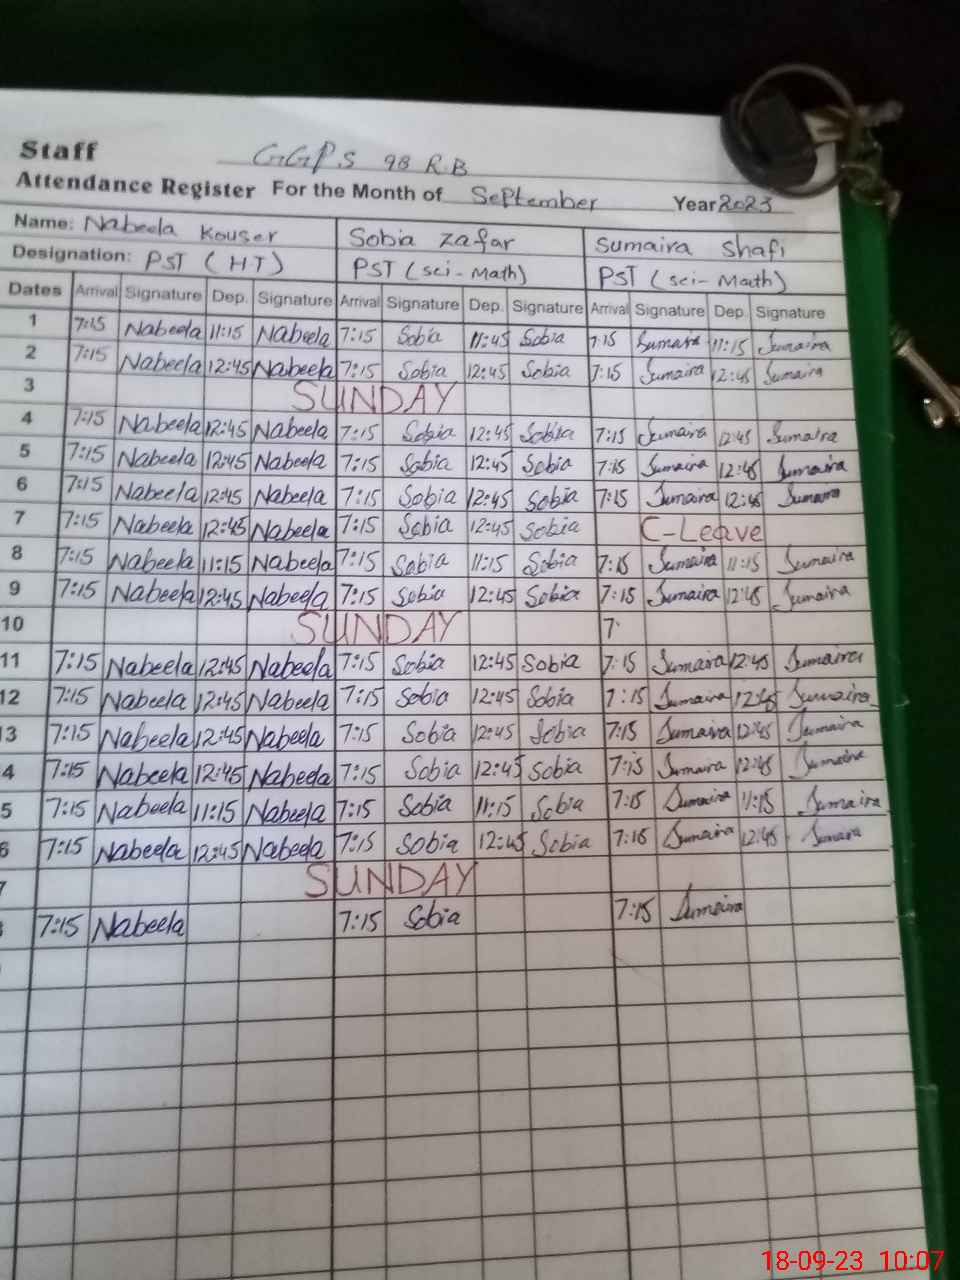 Staff GGPS 98 R.B
Attendance Register For the Month of September Year 2023
Name: Nabeela Kouser Sobia Zafar Sumaira Shafi
Designation: PST (HT) PST (sci-Math) PST (sci-Math)
Dates Arrival Signature Dep. Signature Arrival Signature Dep. Signature Arrival Signature Dep. Signature
1 7:15 Nabeela 11:15 Nabeela 7:15 Sobia 11:45 Sobia 7:15 Sumaira 11:15 Sumaira
2 7:15 Nabeela 12:45 Nabeela 7:15 Sobia 12:45 Sobia 7:15 Sumaira 12:45 Sumaira
3 SUNDAY
4 7:15 Nabeela 12:45 Nabeela 7:15 Sobia 12:45 Sobia 7:15 Sumaira 12:45 Sumaira
5 7:15 Nabeela 12:45 Nabeela 7:15 Sobia 12:45 Sobia 7:15 Sumaira 12:45 Sumaira
6 7:15 Nabeela 12:45 Nabeela 7:15 Sobia 12:45 Sobia 7:15 Sumaira 12:45 Sumaira
7 7:15 Nabeela 12:45 Nabeela 7:15 Sobia 12:45 Sobia C-Leave
8 7:15 Nabeela 11:15 Nabeela 7:15 Sobia 11:15 Sobia 7:15 Sumaira 11:15 Sumaira
9 7:15 Nabeela 12:45 Nabeela 7:15 Sobia 12:45 Sobia 7:15 Sumaira 12:45 Sumaira
10 SUNDAY 7:
11 7:15 Nabeela 12:45 Nabeela 7:15 Sobia 12:45 Sobia 7:15 Sumaira 12:45 Sumaira
12 7:15 Nabeela 12:45 Nabeela 7:15 Sobia 12:45 Sobia 7:15 Sumaira 12:45 Sumaira
3 7:15 Nabeela 12:45 Nabeela 7:15 Sobia 12:45 Sobia 7:15 Sumaira 12:45 Sumaira
4 7:15 Nabeela 12:45 Nabeela 7:15 Sobia 12:45 Sobia 7:15 Sumaira 12:45 Sumaira
5 7:15 Nabeela 11:15 Nabeela 7:15 Sobia 11:15 Sobia 7:15 Sumaira 11:15 Sumaira
6 7:15 Nabeela 12:45 Nabeela 7:15 Sobia 12:45 Sobia 7:15 Sumaira 12:45 Sumaira
7 SUNDAY
7:15 Nabeela 7:15 Sobia 7:15 Sumaira
18-09-23 10:07